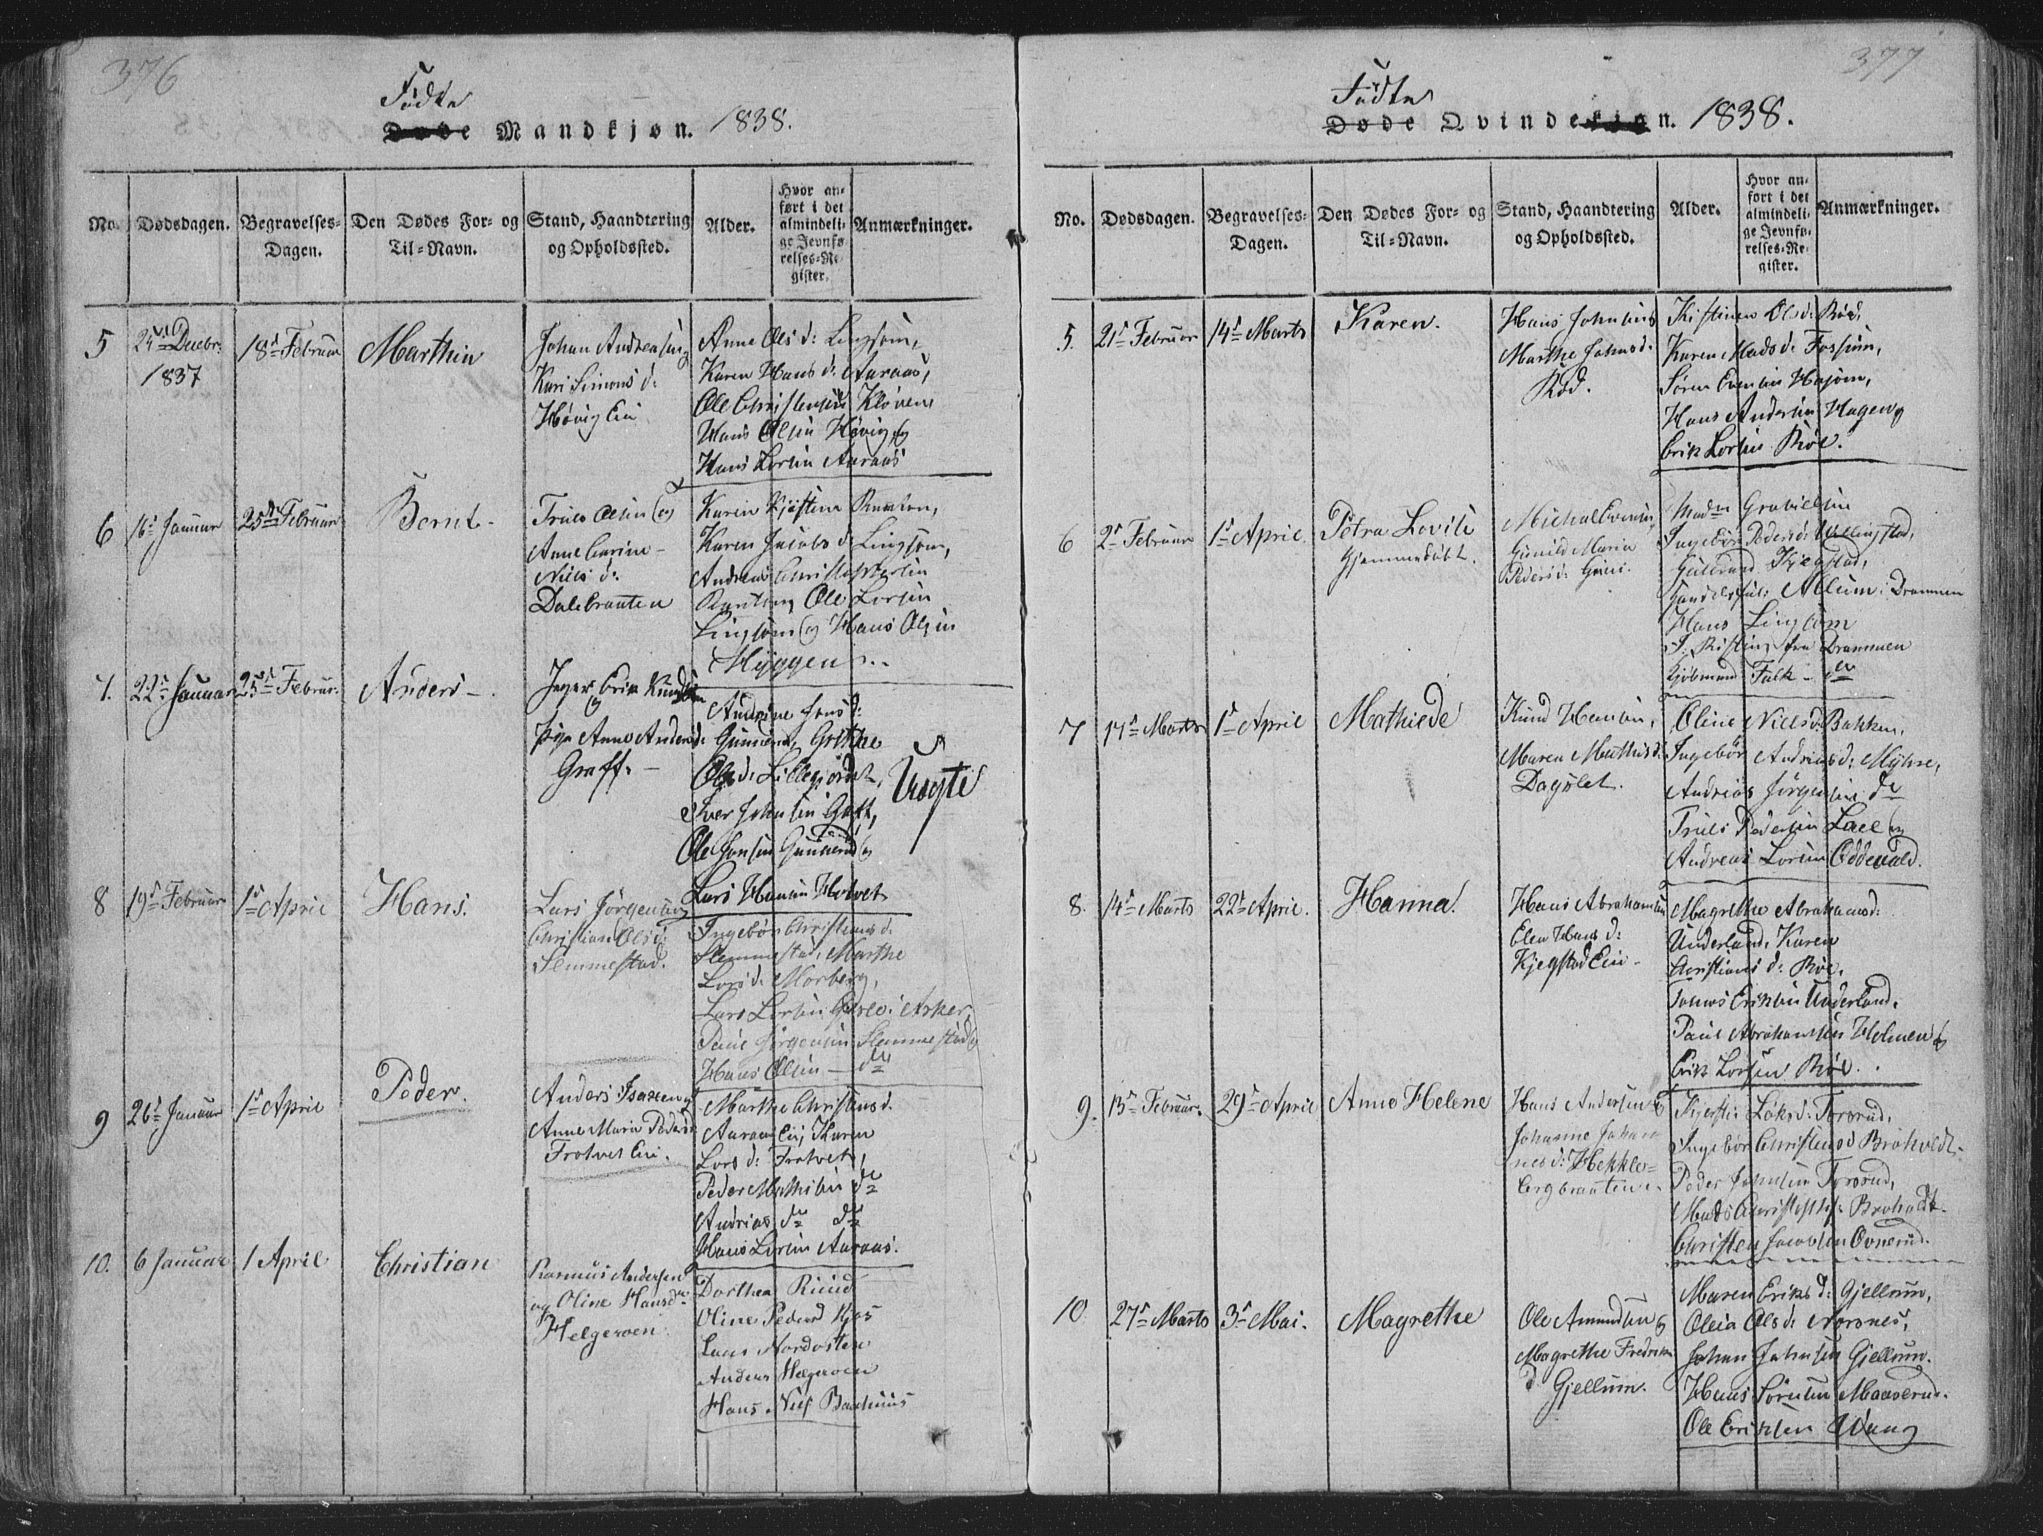 376
Födte
Døde Mandkjøn. 1838.
No.
Dødsdagen.
Begravelses-
Dagen.
Den Dødes For- og
Til-Navn.
Stand, Haandtering
og Opholdssted.
Alder.
Hvor an-
ført i det
almindeli-
ge Jevnfø-
relses-Re-
gister.
Anmærkninger.
5
1837
18de Februar
Marthin
Johan Andreasen
Kari Simons d:
Høvig Eie
Anne Ols d: Lingsom,
Karen Hans d: Aaraas,
Ole Christensen Kloven,
Hans Olsen Høvig og
Hans Larsen Aaraas
6
16de Januar
25de Februar
Bernt
Truls Olsen og
Anne Carine
Niels d:
Dalebraaten
Karen Jacobs d: Lingsom,
Andreas Christophersen
Ole Larsen
Lingsom og Hans Olsen
Myggen
7.
22de Januar
25de Februar
Anders
Jnger Erik Knudsen
Pige Anne Anders d:
Graff.
Andrine Jons d:
Gunnerud, Grethe
Ols d: Lillegjordet,
Iver Johnsen
Ole Jonsen Gunnerud og
Lars Hansen Hotvet
Uægte
8
19de Februar
1de April
Hans.
Lars Jørgensen og
Christiane Ols d:
Slemmestad.
Ingebor Christians d:
Slemmestad, Marthe
Lars d: Morberg,
Lars Larsen Asker
Paul Jørgensen Slemmestad og
Hans Olsen do
9
26de Januar
1de April
Peder.
Anders Isaksen og
Anne Marie Peders d:
Frotvet Eie.
Marthe Christens d:
Aaraas Eie, Karen
Lars d: Frotvet,
Peder Mathisen do
Andrias do do
Hans Larsen Aaraas.
10.
6 Januar
1 April
Christian
Rasmus Andersen
og Oline Hansdr
Helgeroen
Dorthea Riiud
Oline Pedersd Kjos
Lars Nordosten
Anders Helgeroen
Hans Niels
377
Födte
Døde Qvindekjøn. 1838.
No.
Dødsdagen.
Begravelses-
Dagen.
Den Dødes For- og
Til-Navn.
Stand, Haandtering
og Opholdssted.
Alder.
Hvor an-
ført i det
almindeli-
ge Jevnfø-
relses-Re-
gister.
Anmærkninger.
5.
21de Februar
14de Marts
Karen.
Hans Johnsen
Marthe Johns d:
Röd.
Kistine Ols d: Röd,
Karen Mads d: Fossum,
Søren Evensen Hajom,
Hans Andersen Hagen og
Erik Larsen Röe.
6
2de Februar
1de April.
Petra Lovise
Hjemmedöbt.
Michal Evensen,
Gunild Maria
Peders d:
Madm Grabielsen
Ingebor Peders d: Villingstad,
Gulbrand Kjegstad,
Drammen
Hans Lingsom
fra Drammen
Kjöbmand Falk do
7
14de Marts
1de April
Mathiede
Knud Hansen,
Maren Mathis d:
Dagslet.
Oline Niels d: Bakken,
Ingebor Andrias d: Myhre,
Andrias Jørgensen do
Truls Pedersen Lael og
Andreas Larsen Oddevald.
8.
14de Marts
22de April.
Hanna.
Hans Abrahamsen
Elen Hans d:
Kjegstad Eie
Magrethe Abrahams d:
Underland, Karen
Christians d: Röe,
Tomas Eriksen Underland,
Paul Abrahamsen Holmen og
Erik Larsen Röe.
9.
13de Februar
29de April
Anne Helene
Hans Andersen og
Johanne Johan
nes d: Hekkle-
bergbraaten
Kjersti Laks d: Torsrud,
Ingebor Christens d Braholdt
Peder Johnsen Torsrud,
Mads Christoph: Braholdt
Christen Jacobsen Ovnerud.
10
27de Marts
3de Mai.
Magrethe
Ole Amundsen og
Magrethe Fredriks
d Gjellum.
Maren Eriks d: Gjellum,
Oleia Ols d: Norsnes,
Johan Johnsen Gjellum.
Hans Sørensen Maaserud.
Ole Eriksen Wang